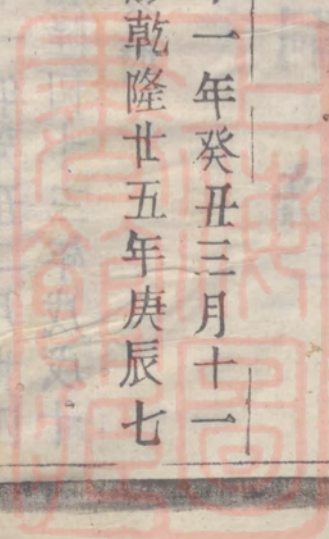 一年癸丑三月十一
乾隆廿五年庚辰七